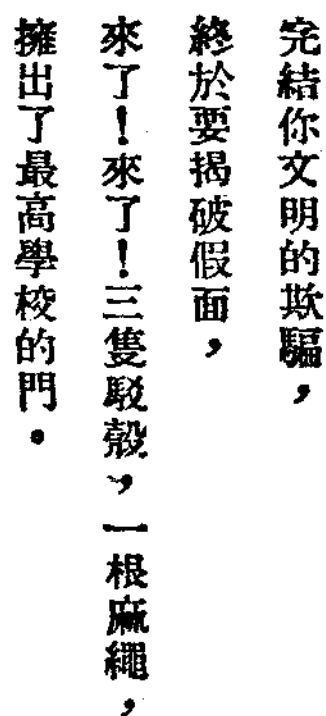 完結你文明的欺騙，
終於要揭破假面，
來了！來了！三隻駁殼，一根麻繩，
擁出了最高學校的門。